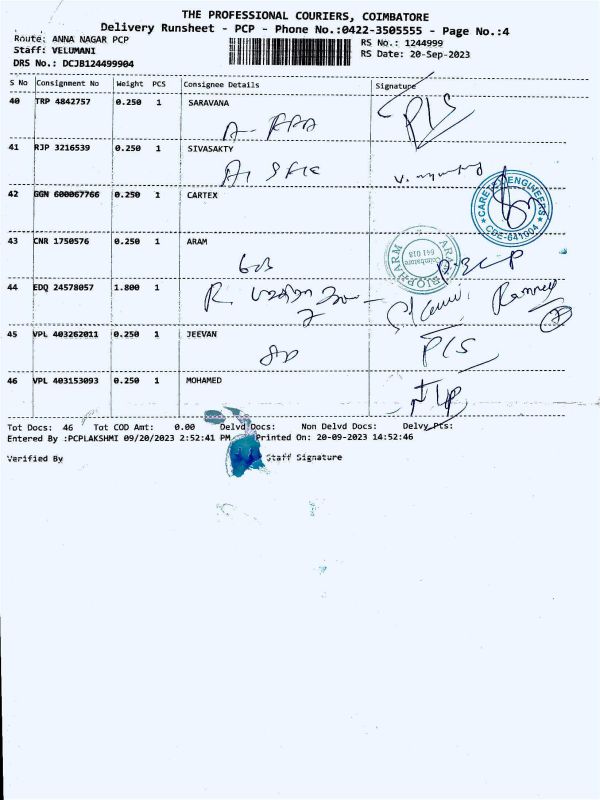 THE PROFESSIONAL COURIERS, COIMBATORE
Delivery Runsheet - PCP - Phone No.:0422-3505555 - Page No.:4
Route: ANNA NAGAR PCP RS No.: 1244999
Staff: VELUMANI RS Date: 20-Sep-2023
DRS No.: DCJB124499904
S No Consignment No Weight PCS Consignee Details Signature
40 TRP 4842757 0.250 1 SARAVANA
PLS
41 RJP 3216539 0.250 1 SIVASAKTY
42 GGN 600067766 0.250 1 CARTEX
CARE ENGINEERS
CBE-641004
43 CNR 1750576 0.250 1 ARAM
ARAM BIOPHARM
Coimbatore
641 018
44 EDQ 24578057 1.800 1
45 VPL 403262011 0.250 1 JEEVAN
PLS
46 VPL 403153093 0.250 1 MOHAMED
Tot Docs: 46 Tot COD Amt: 0.00 Delvd Docs: Non Delvd Docs: Delvy Pts:
Entered By :PCPLAKSHMI 09/20/2023 2:52:41 PM Printed On: 20-09-2023 14:52:46
Verified By Staff Signature